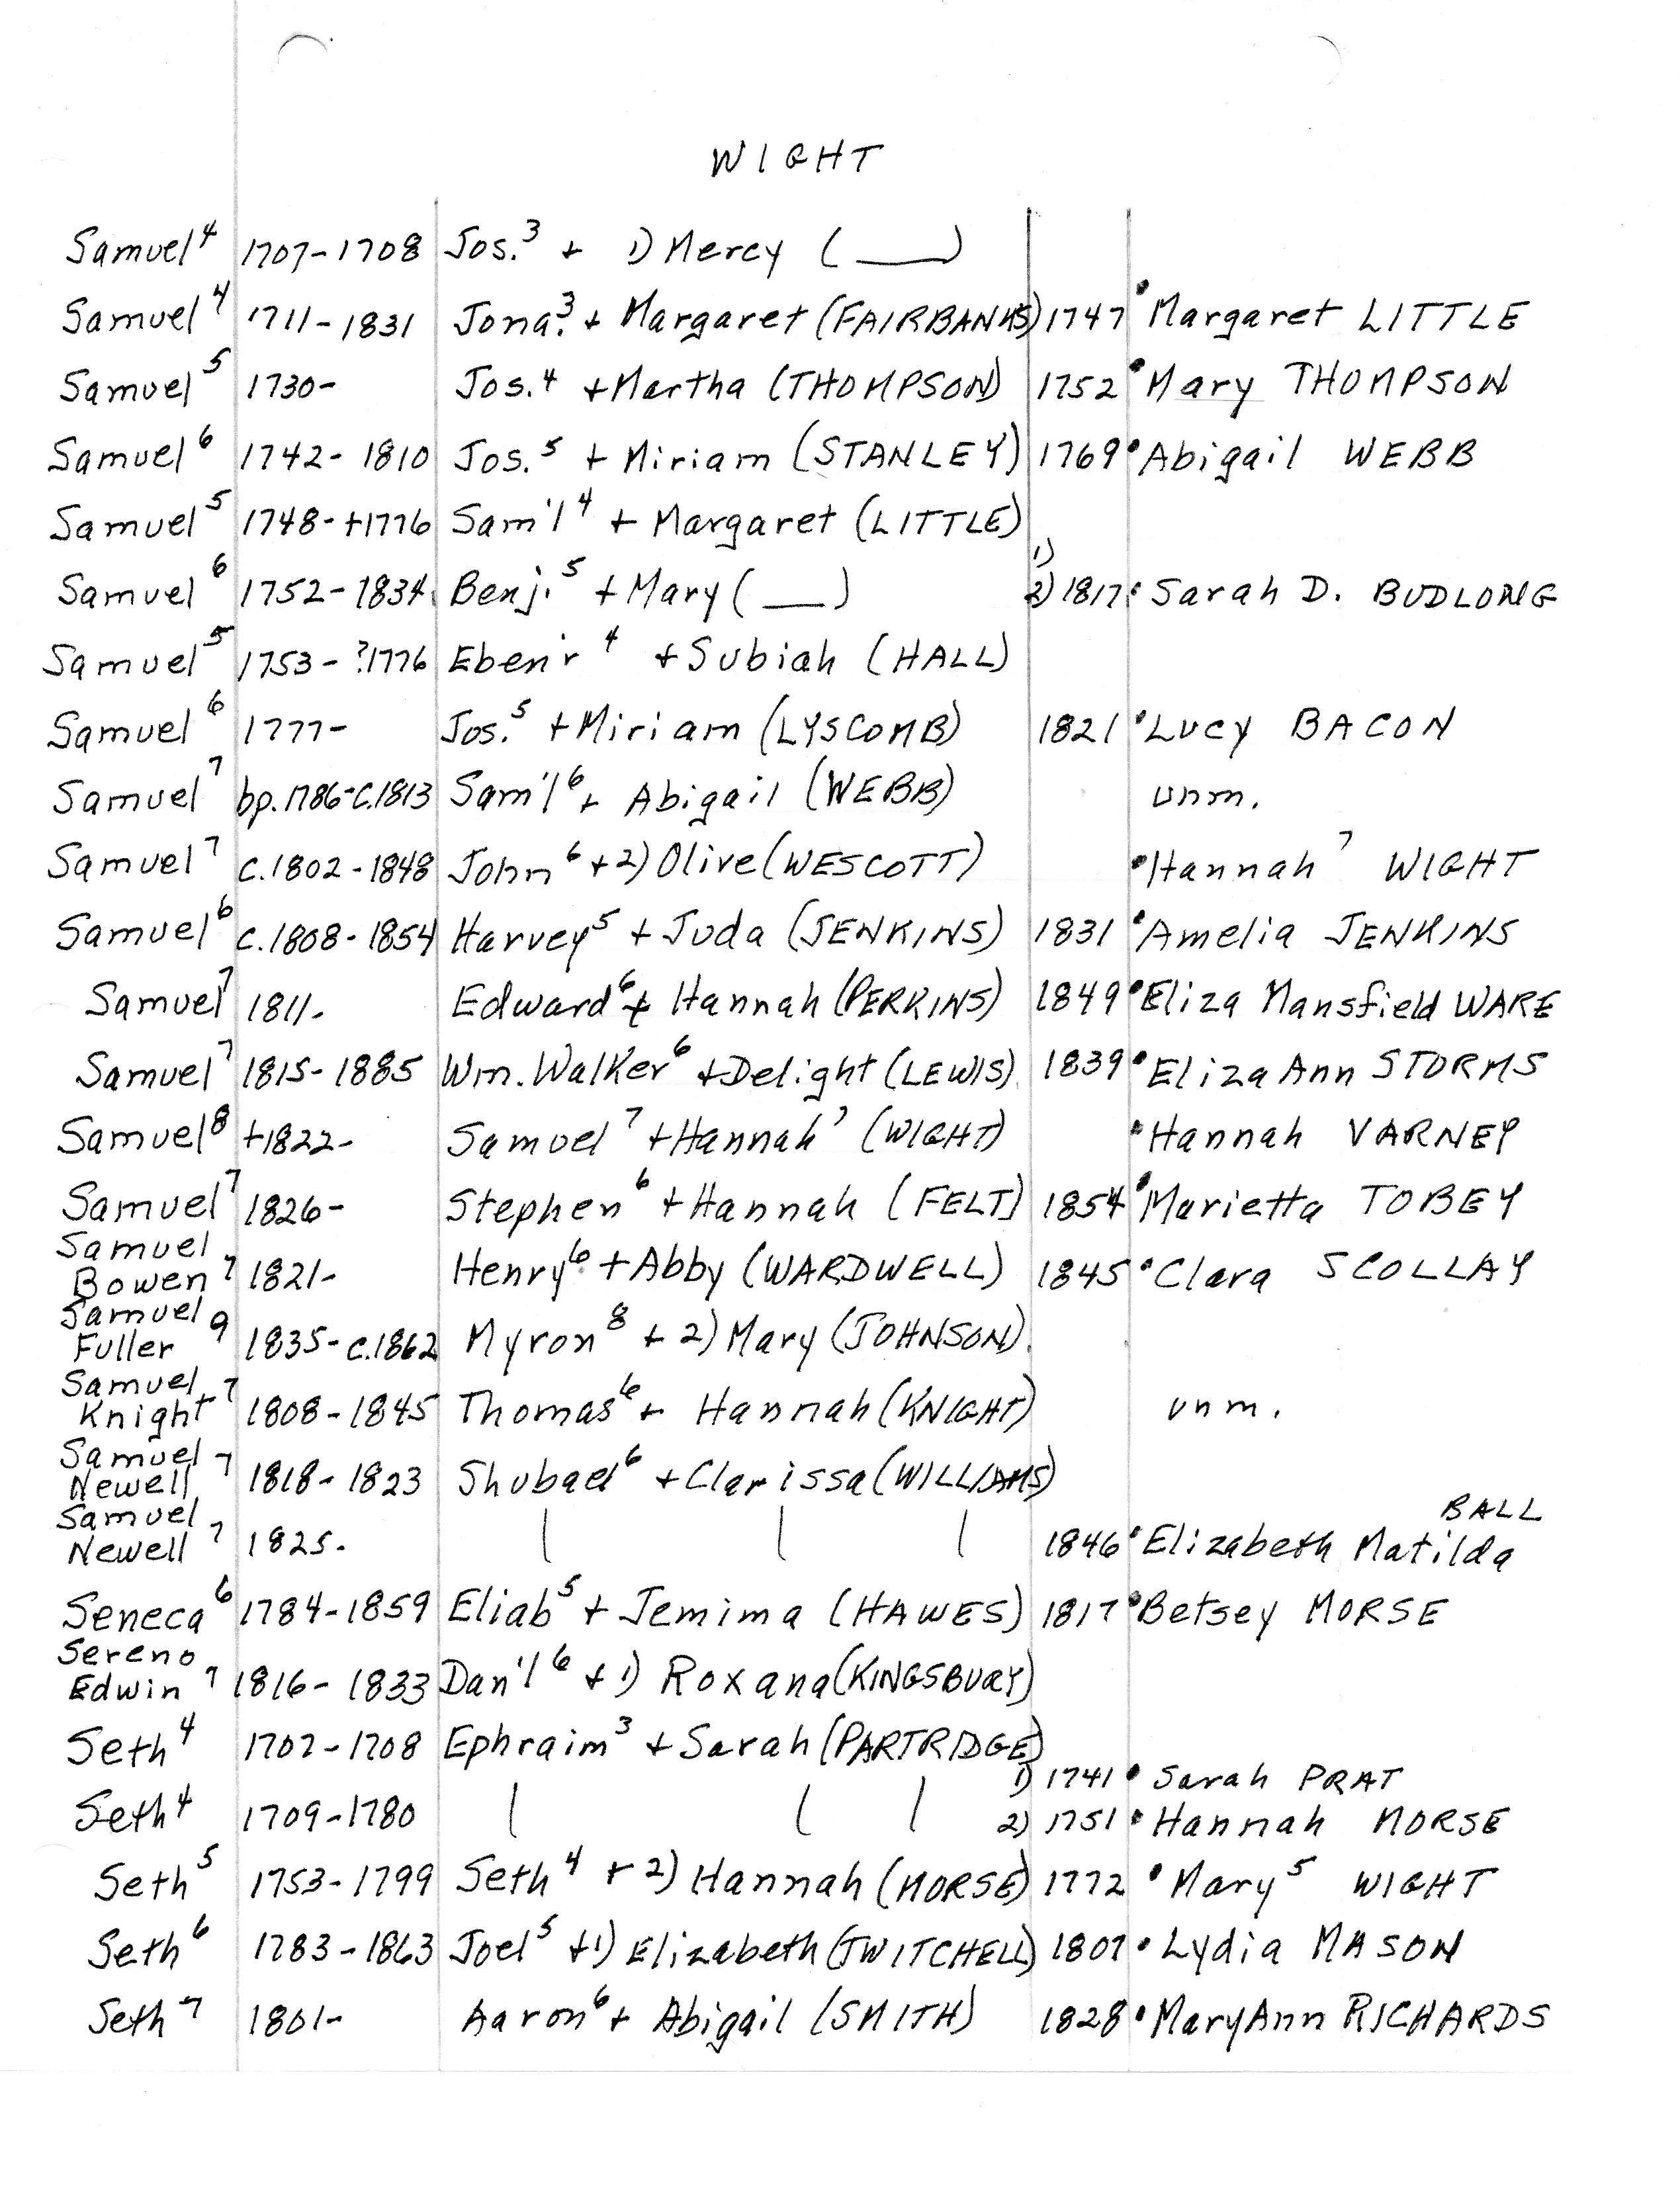 WIGHT
Samuel⁴ 1707-1708 Jos.³ + 1) Mercy (___)
Samuel⁴ 1711-1831 Jona.³ + Margaret (FAIRBANKS) 1747 • Margaret LITTLE
Samuel⁵ 1730- Jos.⁴ + Martha (THOMPSON) 1752 • Mary THOMPSON
Samuel⁶ 1742-1810 Jos.⁵ + Miriam (STANLEY) 1769 • Abigail WEBB
Samuel⁵ 1748-+1776 Sam'l⁴ + Margaret (LITTLE)
1)
Samuel⁶ 1752-1834 Benj.⁵ + Mary (___) 2) 1817 • Sarah D. BUDLONG
Samuel⁵ 1753-?1776 Eben'r⁴ + Subiah (HALL)
Samuel⁶ 1777- Jos.⁵ + Miriam (LYSCOMB) 1821 • Lucy BACON
Samuel⁷ bp.1786-c.1813 Sam'l⁶ + Abigail (WEBB) unm.
Samuel⁷ c.1802-1848 John⁶ + 2) Olive (WESCOTT) • Hannah⁷ WIGHT
Samuel⁶ c.1808-1854 Harvey⁵ + Juda (JENKINS) 1831 • Amelia JENKINS
Samuel⁷ 1811- Edward⁶ + Hannah (PERKINS) 1849 • Eliza Mansfield WARE
Samuel⁷ 1815-1885 Wm. Walker⁶ + Delight (LEWIS) 1839 • Eliza Ann STORMS
Samuel⁸ +1822- Samuel⁷ + Hannah⁷ (WIGHT) • Hannah VARNEY
Samuel⁷ 1826- Stephen⁶ + Hannah (FELT) 1854 • Marietta TOBEY
Samuel
Bowen⁷ 1821- Henry⁶ + Abby (WARDWELL) 1845 • Clara SCOLLAY
Samuel
Fuller⁹ 1835-c.1862 Myron⁸ + 2) Mary (JOHNSON)
Samuel
Knight⁷ 1808-1845 Thomas⁶ + Hannah (KNIGHT) unm.
Samuel
Newell⁷ 1818-1823 Shubael⁶ + Clarissa (WILLIAMS)
Samuel BALL
Newell⁷ 1825- | | | 1846 • Elizabeth Matilda
Seneca⁶ 1784-1859 Eliab⁵ + Jemima (HAWES) 1817 • Betsey MORSE
Sereno
Edwin⁷ 1816-1833 Dan'l⁶ + 1) Roxana (KINGSBURY)
Seth⁴ 1702-1708 Ephraim³ + Sarah (PARTRIDGE)
1) 1741 • Sarah PRAT
Seth⁴ 1709-1780 | | | 2) 1751 • Hannah MORSE
Seth⁵ 1753-1799 Seth⁴ + 2) Hannah (MORSE) 1772 • Mary⁵ WIGHT
Seth⁶ 1783-1863 Joel⁵ + 1) Elizabeth (TWITCHELL) 1807 • Lydia MASON
Seth⁷ 1801- Aaron⁶ + Abigail (SMITH) 1828 • Mary Ann RICHARDS